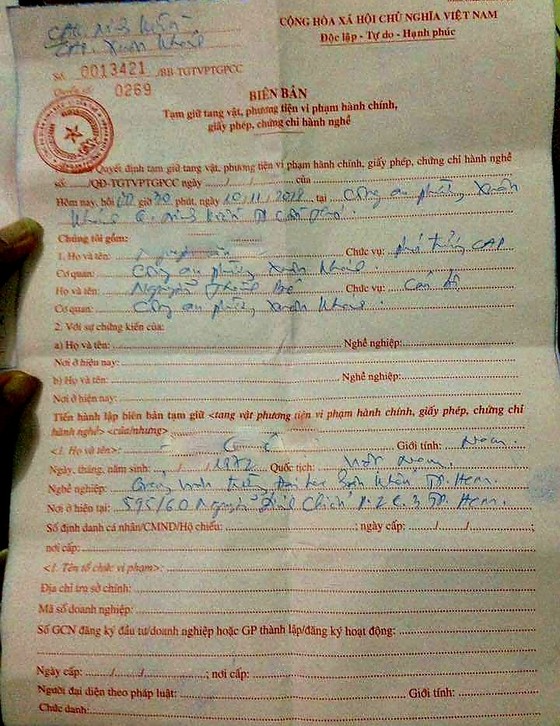 CỘNG HÒA XÃ HỘI CHỦ NGHĨA VIỆT NAM
Độc lập - Tự do - Hạnh phúc
CAQ. Ninh Kiều
CAP. Xuân Khánh
Số 0013421 /BB-TGTVPTGPCC
Quyển số 0269
BIÊN BẢN
Tạm giữ tang vật, phương tiện vi phạm hành chính,
giấy phép, chứng chỉ hành nghề
Quyết định tạm giữ tang vật, phương tiện vi phạm hành chính, giấy phép, chứng chỉ hành nghề
số:....../QĐ-TGTVPTGPCC ngày ....../....../...... của
Hôm nay, hồi giờ 30 phút, ngày 10/11/2018 tại Công an phường Xuân
Khánh Q. Ninh Kiều TP Cần Thơ.
Chúng tôi gồm:
1. Họ và tên: Chức vụ: phó trưởng CAP
Cơ quan: Công an phường Xuân Khánh.
Họ và tên: Nguyễn Chức vụ: Cán bộ
Cơ quan: Công an phường Xuân Khánh.
2. Với sự chứng kiến của:
a) Họ và tên: Nghề nghiệp:
Nơi ở hiện nay:
b) Họ và tên: Nghề nghiệp:
Nơi ở hiện nay:
Tiến hành lập biên bản tạm giữ <tang vật phương tiện vi phạm hành chính, giấy phép, chứng chỉ
hành nghề> <của/nhưng>
<1. Họ và tên>: Giới tính: Nam.
Ngày, tháng, năm sinh: ....../....../1972 Quốc tịch: Việt Nam.
Nghề nghiệp: trường Đại học TP. Hcm.
Nơi ở hiện tại: 595/60 Nguyễn Đình Chiểu P.2 Q.3 TP. Hcm.
Số định danh cá nhân/CMND/Hộ chiếu: ; ngày cấp: ....../....../...... ;
nơi cấp:
<1. Tên tổ chức vi phạm>:
Địa chỉ trụ sở chính:
Mã số doanh nghiệp:
Số GCN đăng ký đầu tư/doanh nghiệp hoặc GP thành lập/đăng ký hoạt động:
Ngày cấp: ....../....../...... ; nơi cấp:
Người đại diện theo pháp luật: Giới tính:
Chức danh: